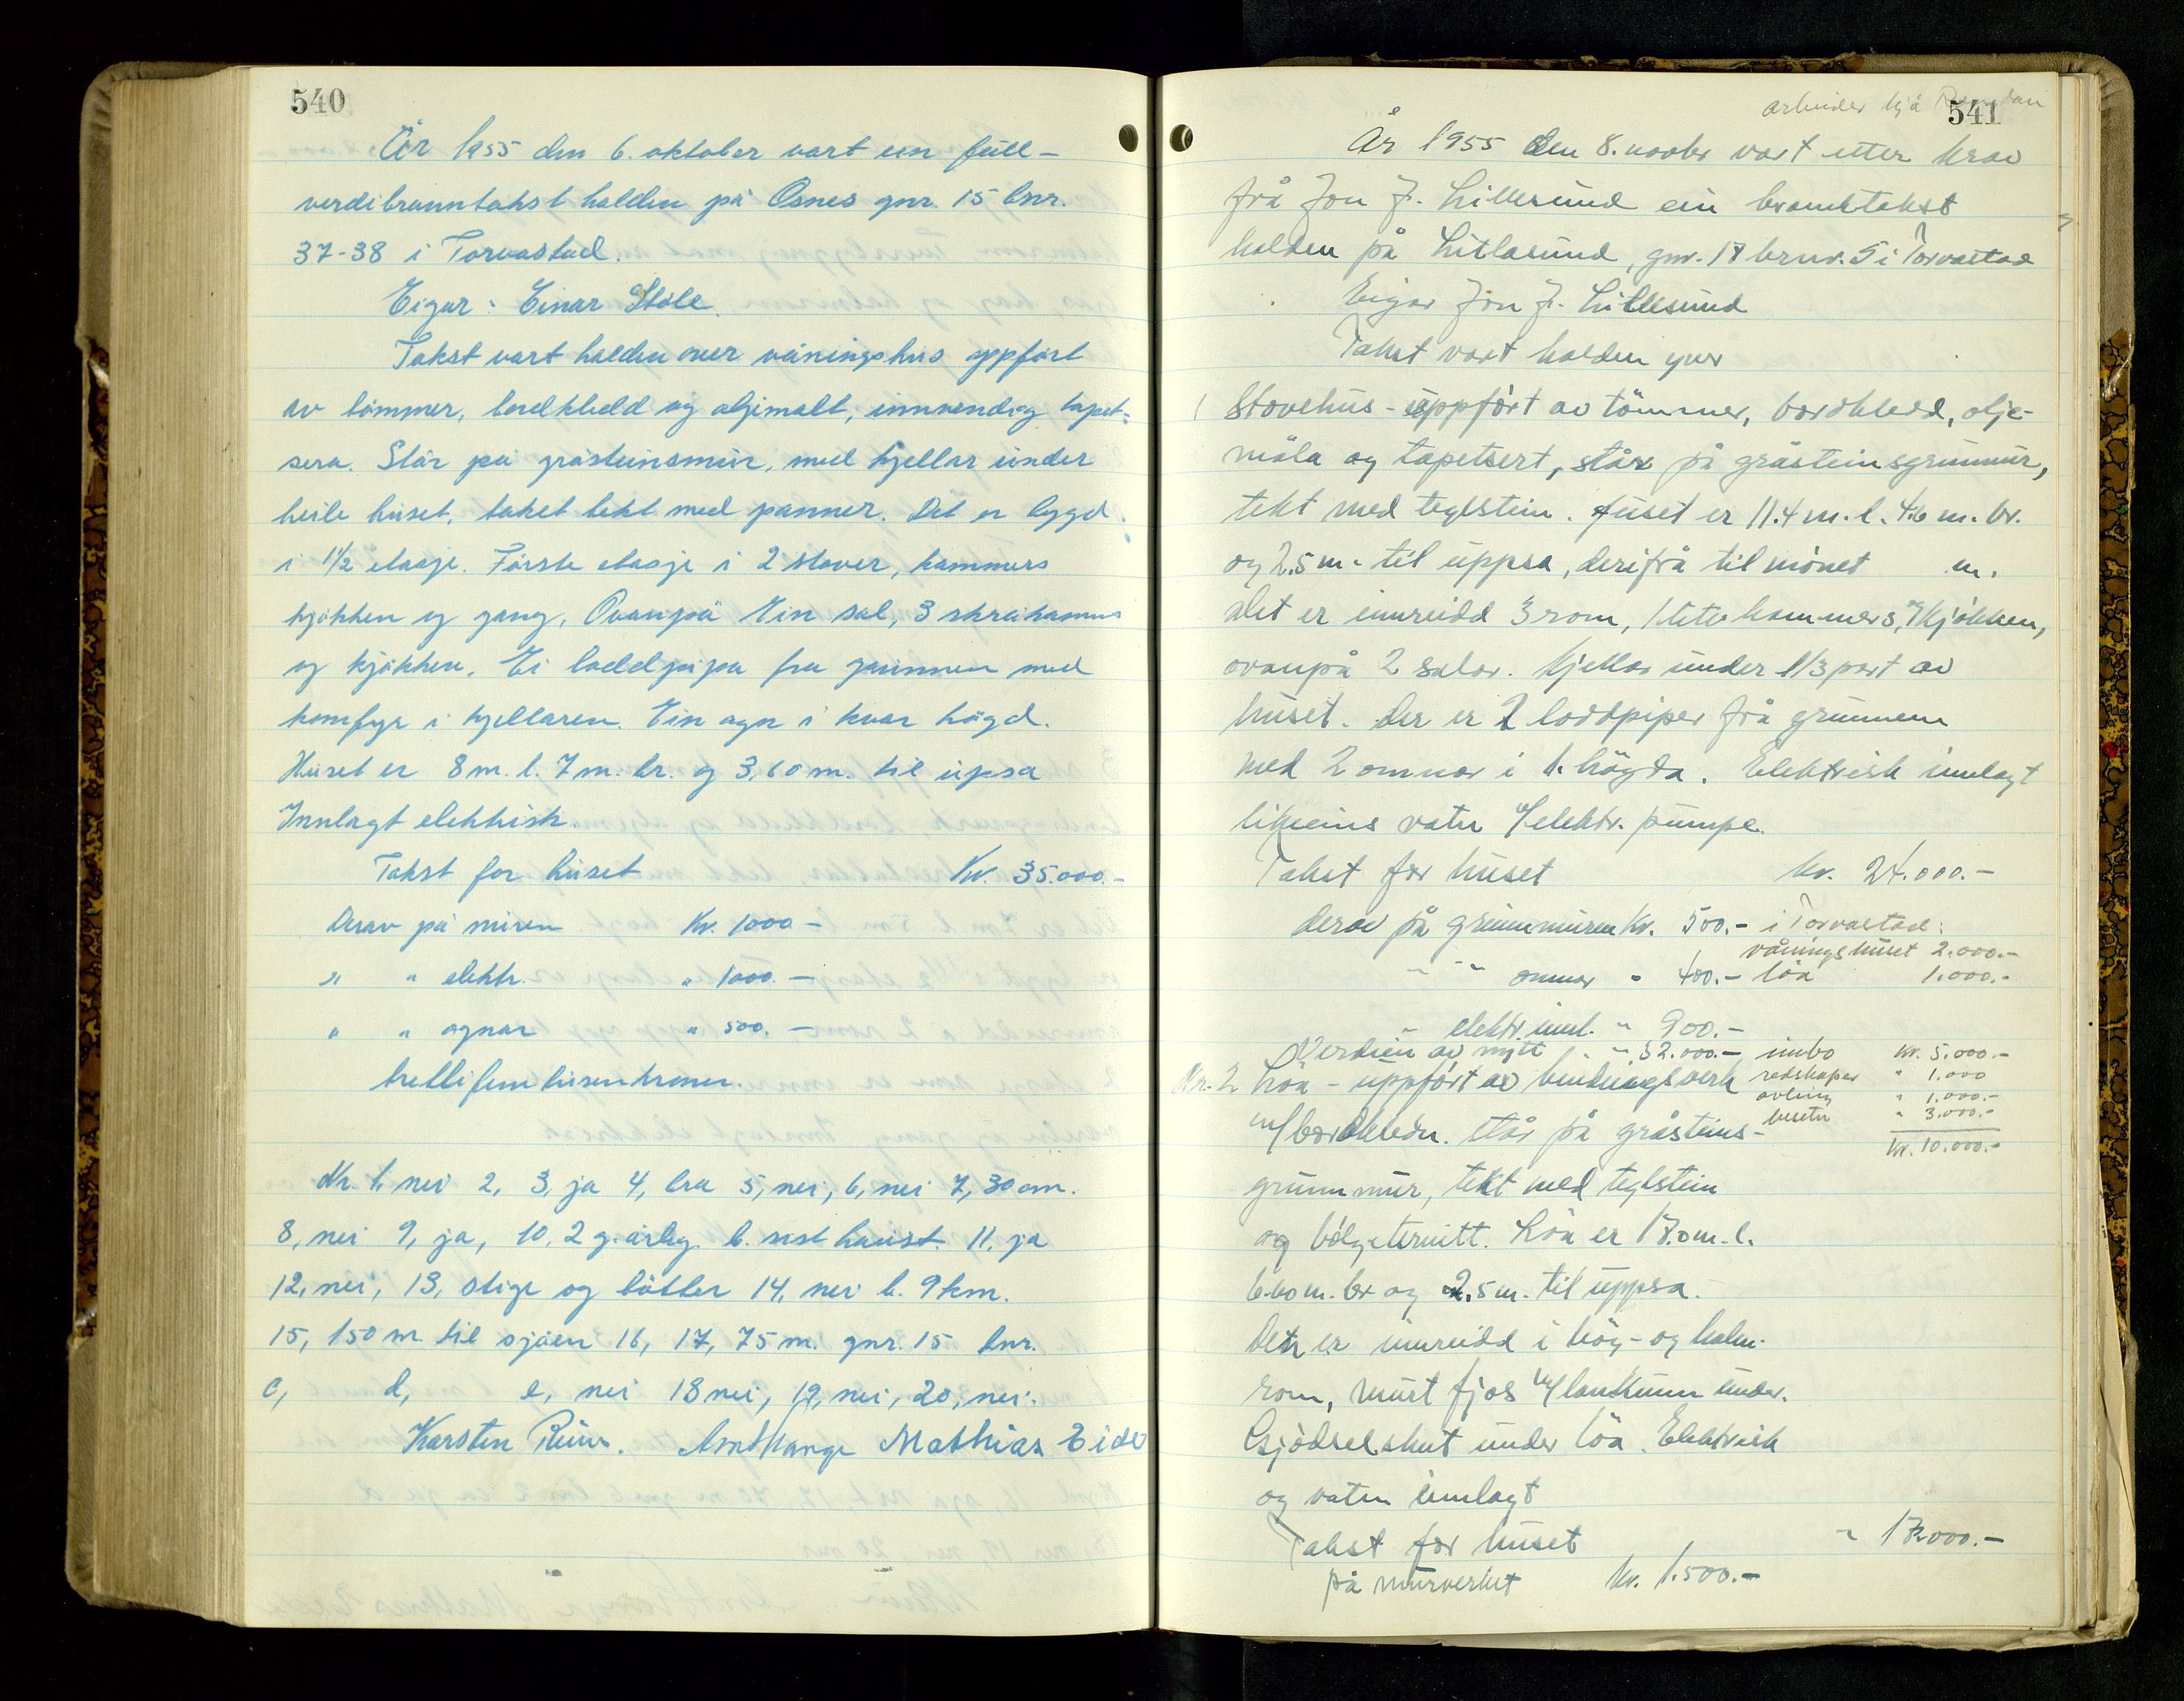 540
År 1955 den 6. oktober vart ein full-
verdibranntakst halden på Osnes gnr. 15 bnr.
37-38 i Torvastad.
Eigar: Einar Støle.
Takst vart halden over våningshus oppført
av tømmer, bordkledd og oljemalt, innvendig tapet-
sera. Står på gråsteinsmur, med kjellar under
heile huset, taket tekt med panner. Det er bygd
i 1 1/2 etasje. Første etasje i 2 stover, kammers
kjøkken og gang. Ovanpå Ein sal, 3 skråkamus
og kjøkken. Ei loddpipa fra grunnen med
komfyr i kjellaren. Ein ogn i kvar högd.
Huset er 8 m. l. 7 m. br. og 3,60 m. til upsa
Innlagt elektrisk.
Takst for huset Kr. 35.000.-
Derav på muren Kr. 1000-
" " elektr. " 1000.-
" " ognar " 500.-
trettifemtusenkroner.
Nr. 1, nei 2, 3, ja 4, bra 5, nei, 6, nei 7, 30 cm.
8, nei 9, ja, 10, 2 g. årleg b. sist haust. 11, ja
12, nei, 13, stige og bøtter 14, nei b. 9 km.
15, 150 m. til sjøen 16, 17, 75 m. gnr. 15 bnr.
c, d, e, nei 18 nei, 19, nei, 20, nei.
Karsten Mathias Eide
arbeider hjå
541
År 1955 den 8. novbr vart etter krav
frå Jon J. Lillesund ein branntakst
halden på Litlasund, gnr. 17 brnr. 5 i Torvastad
Eigar Jon J. Lillesund
Takst vart halden yver
1 Stovehus - uppført av tømmer, bordkledd, olje-
måla og tapetsert, står på gråsteinsgrunnmur,
tekt med teglstein. Huset er 11.4 m. l. 4.6 m. br.
og 2.5 m. til uppsa, derifrå til mønet m.
Det er innreidd 3 rom, 1 lite kammers, og kjøkken,
ovanpå 2 salar. Kjellar under 1/3 part av
huset. Der er 2 loddpiper frå grunnen
med 2 omnar i 1. högda. Elektrisk innlagt
likeeins vatn m/elektr. pumpe.
Takst for huset kr. 24.000.-
derav på grunnmuren kr. 500.- i Torvastad:
våningshuset 2.000.-
" " omnar " 400.- löa 1.000.-
" elektr. innl. " 900.-
Verdien av nytt " 32.000.- innbo kr. 5.000.-
Nr. 2 Löa - uppført av bindingsverk redskaper " 1.000
avling " 1.000.-
m/bordkledn. står på gråsteins- buseta " 3.000.-
kr. 10.000.-
grunnmur, tekt med teglstein
og bölgeternitt. Löa er 17.0 m. l.
6.60 m. br og 2.5 m. til uppsa.
Det er innreidd i höy- og halm-
rom, murt fjos m/landkum under.
Gjødselshus under löa. Elektrisk
og vatn innlagt
Takst for huset " 17.000.-
på murverket kr. 1.500.-